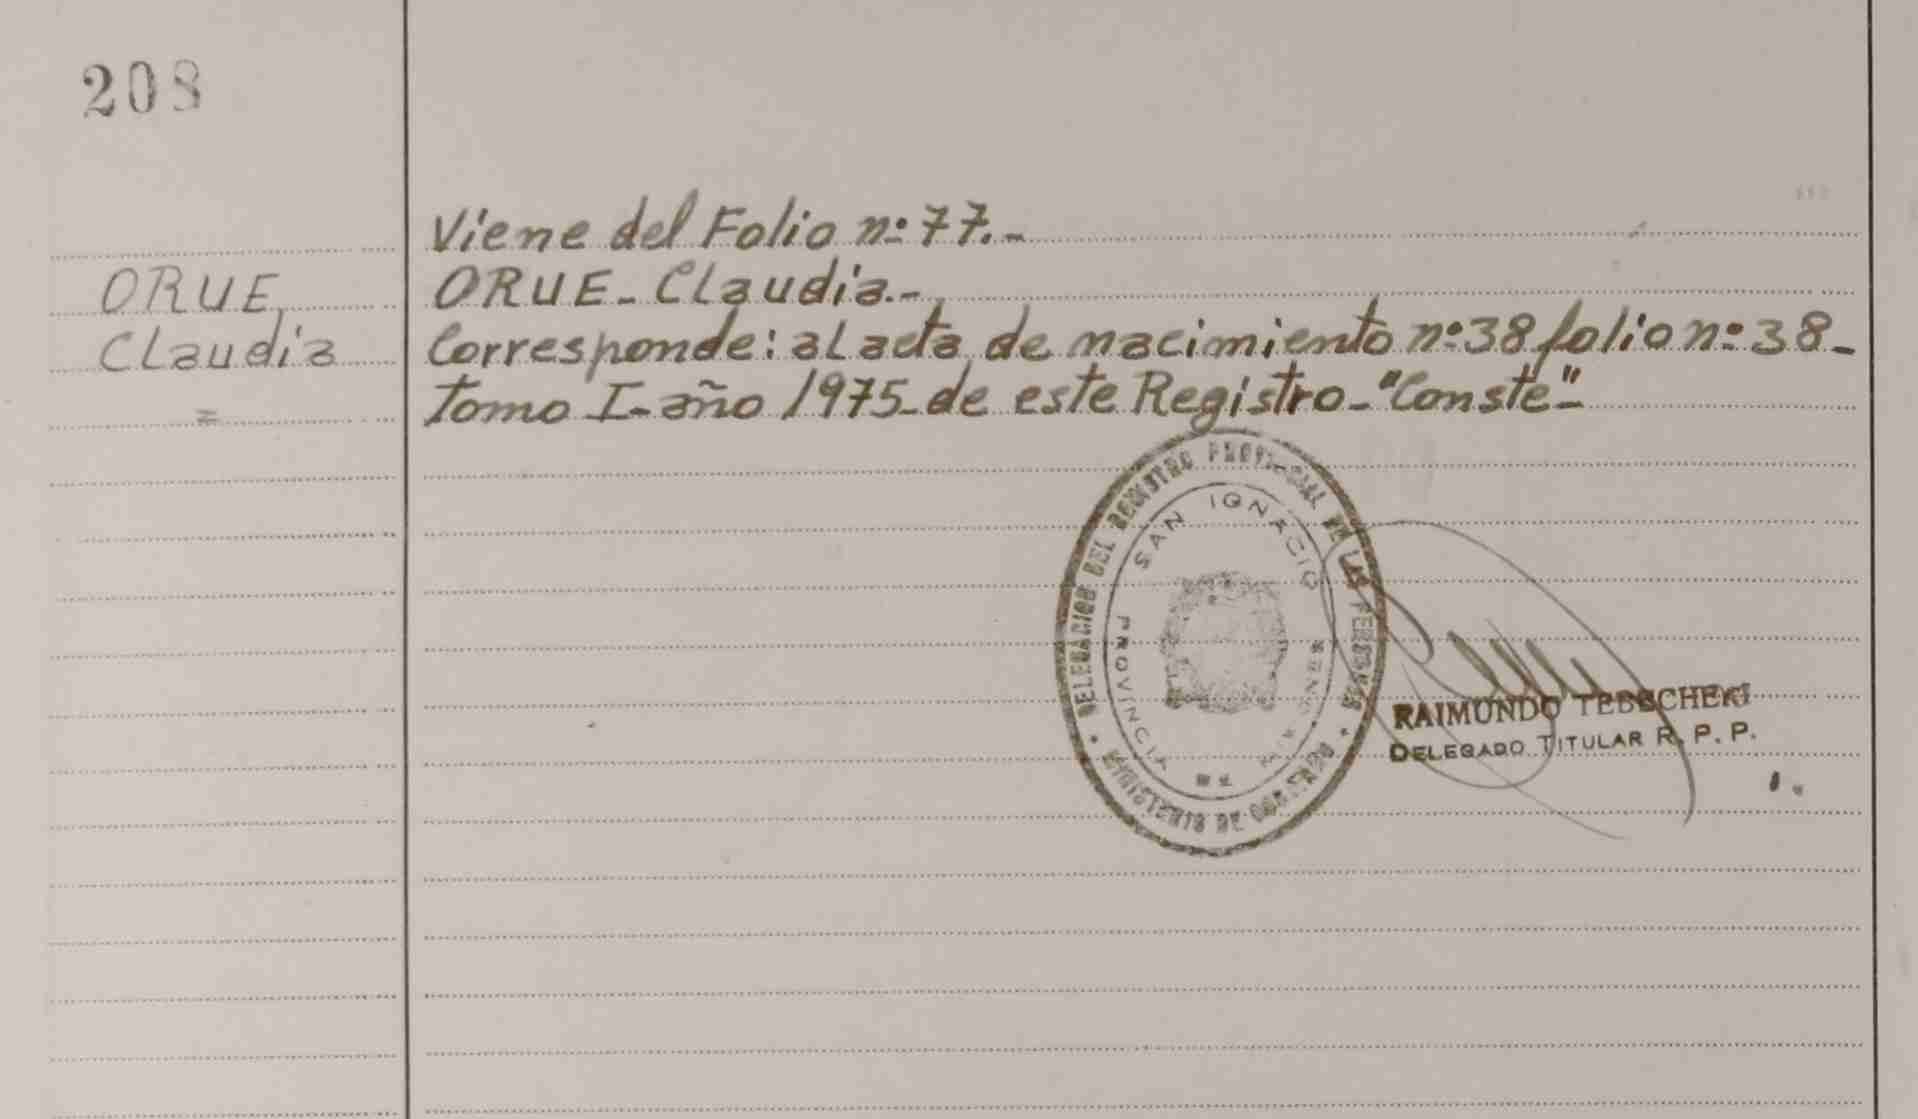 208
Viene del Folio nº 77.-
ORUE - Claudia.-
Corresponde: al acta de nacimiento nº 38 folio nº 38 -
Tomo I - año 1975 - de este Registro - "Conste" -
ORUE,
Claudia
=
DELEGACION DEL REGISTRO PROVINCIAL DE LAS PERSONAS
MINISTERIO DE GOBIERNO
SAN IGNACIO
PROVINCIA DE
RAIMUNDO
DELEGADO TITULAR R. P. P.